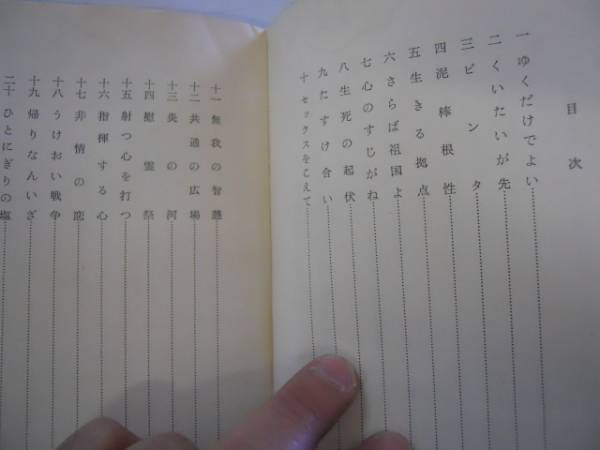 目次
一 ゆくだけでよい
二 くいたいが先
三 ビンタ
四 泥棒根性
五 生きる拠点
六 さらば祖国よ
七 心のすじがね
八 生死の起伏
九 たすけ合い
十 セックスをこえて
十一 無我の智慧
十二 共通の広場
十三 炎の河
十四 慰霊祭
十五 射つ心を打つ
十六 指揮する心
十七 非情の鹿
十八 うけおい戦争
十九 帰りなんいざ
二十 ひとにぎりの塩